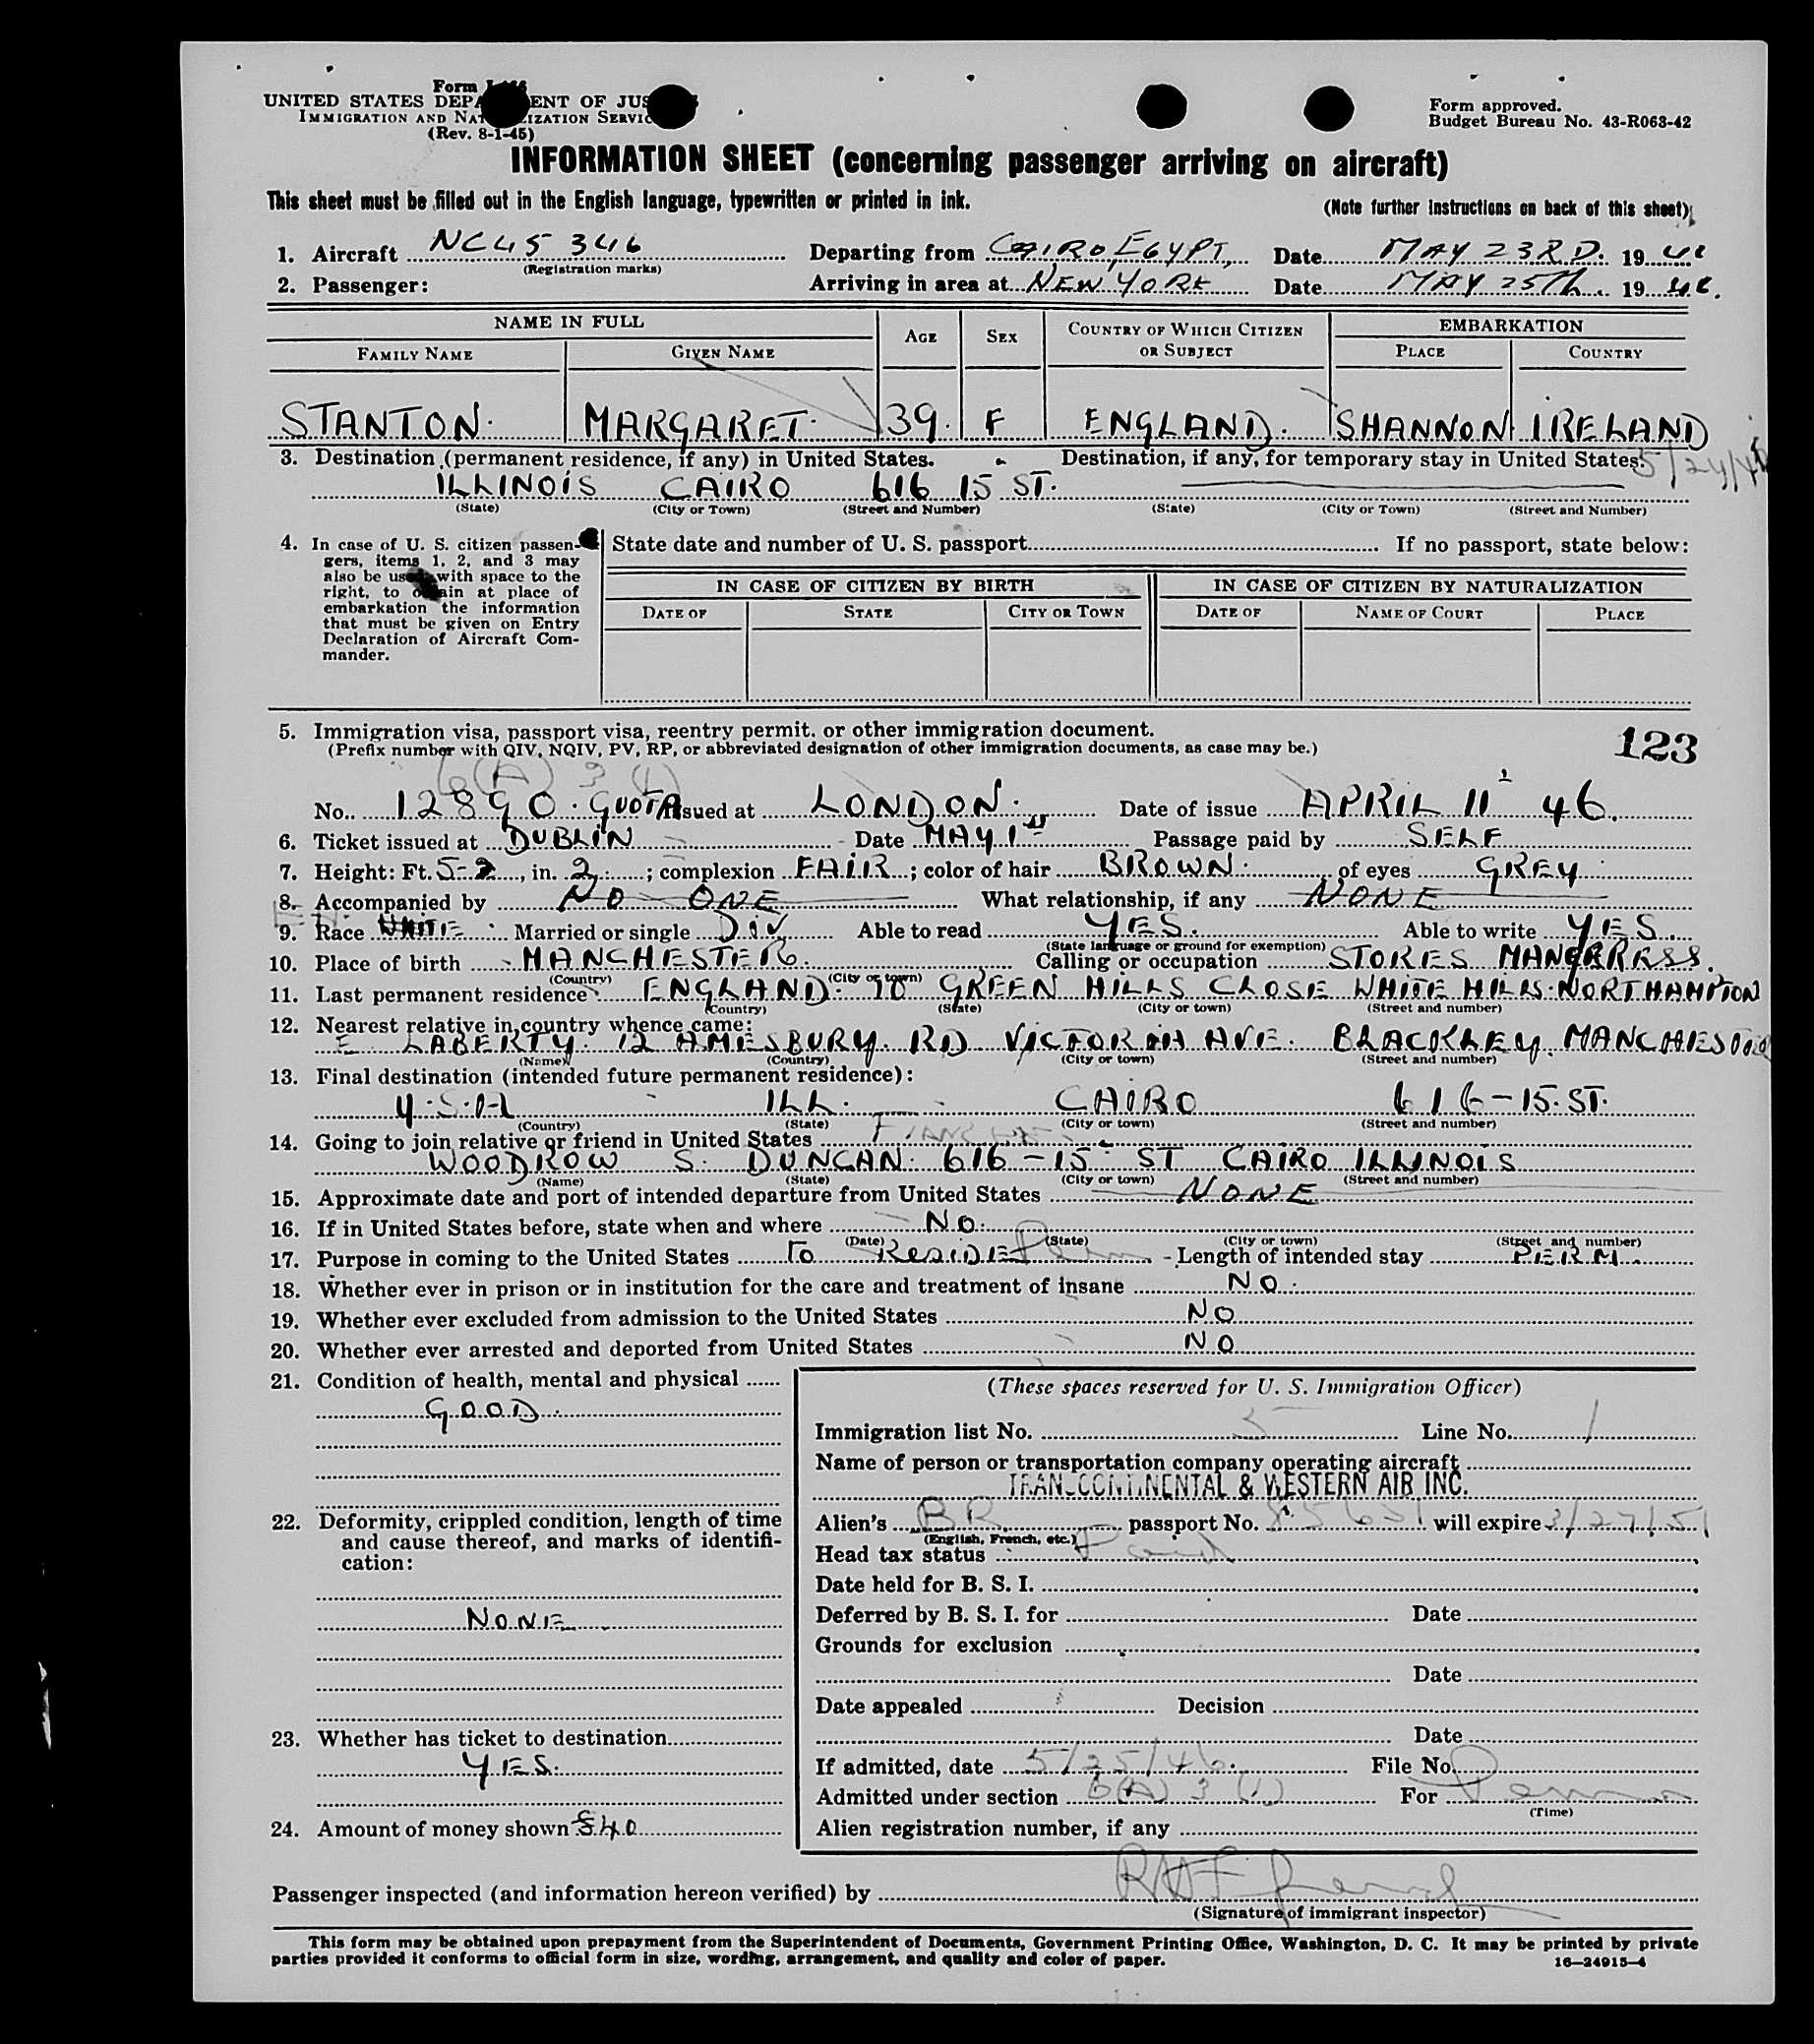 Form
UNITED STATES DEPA ENT OF JUS
IMMIGRATION AND NAT IZATION SERVIC
(Rev. 8-1-45)
Form approved.
Budget Bureau No. 43-R063-42
INFORMATION SHEET (concerning passenger arriving on aircraft)
This sheet must be filled out in the English language, typewritten or printed in ink.
(Note further instructions on back of this sheet)
1. Aircraft NC45346 Departing from CAIRO, EGYPT, Date MAY 23RD. 1946
(Registration marks)
2. Passenger: Arriving in area at NEW YORK Date MAY 25Th. 1946.
NAME IN FULL AGE SEX COUNTRY OF WHICH CITIZEN OR SUBJECT EMBARKATION
FAMILY NAME GIVEN NAME PLACE COUNTRY
STANTON. MARGARET. 39. F ENGLAND. SHANNON IRELAND
3. Destination (permanent residence, if any) in United States. Destination, if any, for temporary stay in United States. 5/24/46
ILLINOIS CAIRO 616 15 ST.
(State) (City or Town) (Street and Number) (State) (City or Town) (Street and Number)
4. In case of U. S. citizen passen-
gers, items 1, 2, and 3 may
also be used with space to the
right, to obtain at place of
embarkation the information
that must be given on Entry
Declaration of Aircraft Com-
mander.
State date and number of U. S. passport If no passport, state below:
IN CASE OF CITIZEN BY BIRTH IN CASE OF CITIZEN BY NATURALIZATION
DATE OF STATE CITY OR TOWN DATE OF NAME OF COURT PLACE
5. Immigration visa, passport visa, reentry permit, or other immigration document.
(Prefix number with QIV, NQIV, PV, RP, or abbreviated designation of other immigration documents, as case may be.)
123
6(A) 3 (1)
No. 12890. QUOTA Issued at LONDON. Date of issue APRIL 11 46.
6. Ticket issued at DUBLIN Date MAY 1st Passage paid by SELF
7. Height: Ft. 5-2, in. 2; complexion FAIR; color of hair BROWN. of eyes GREY
8. Accompanied by NO ONE What relationship, if any NONE
9. Race WHITE Married or single DIV Able to read YES. Able to write YES.
(State language or ground for exemption)
10. Place of birth MANCHESTER. Calling or occupation STORES MANGRRESS.
(Country) (City or town)
11. Last permanent residence ENGLAND. 98 GREEN HILLS CLOSE WHITE HILLS. NORTHAMPTON
(Country) (State) (City or town) (Street and number)
12. Nearest relative in country whence came:
E. LABERTY. 12 AMESBURY. RD VICTORIA AVE. BLACKLEY. MANCHESTER
(Name) (Country) (City or town) (Street and number)
13. Final destination (intended future permanent residence):
U.S.A ILL. CAIRO 616-15. ST.
(Country) (State) (City or town) (Street and number)
14. Going to join relative or friend in United States
WOODROW S. DUNCAN. 616-15 ST CAIRO ILLINOIS
(Name) (State) (City or town) (Street and number)
15. Approximate date and port of intended departure from United States NONE
16. If in United States before, state when and where NO.
(Date) (State) (City or town) (Street and number)
17. Purpose in coming to the United States TO RESIDE Perm Length of intended stay PERM.
18. Whether ever in prison or in institution for the care and treatment of insane NO.
19. Whether ever excluded from admission to the United States NO
20. Whether ever arrested and deported from United States NO
21. Condition of health, mental and physical
GOOD.
22. Deformity, crippled condition, length of time
and cause thereof, and marks of identifi-
cation:
NONE
23. Whether has ticket to destination
YES.
24. Amount of money shown $40
(These spaces reserved for U. S. Immigration Officer)
Immigration list No. 5 Line No. 1
Name of person or transportation company operating aircraft
TRANSCONTINENTAL & WESTERN AIR INC.
Alien's BR passport No. 85631 will expire 3/27/51
(English, French, etc.)
Head tax status Paid
Date held for B. S. I.
Deferred by B. S. I. for Date
Grounds for exclusion
Date
Date appealed Decision
Date
If admitted, date 5/25/46. File No.
Admitted under section 6(A) 3 (1) For Perm
(Time)
Alien registration number, if any
Passenger inspected (and information hereon verified) by
(Signature of immigrant inspector)
This form may be obtained upon prepayment from the Superintendent of Documents, Government Printing Office, Washington, D. C. It may be printed by private
parties provided it conforms to official form in size, wording, arrangement, and quality and color of paper. 16—24915-4